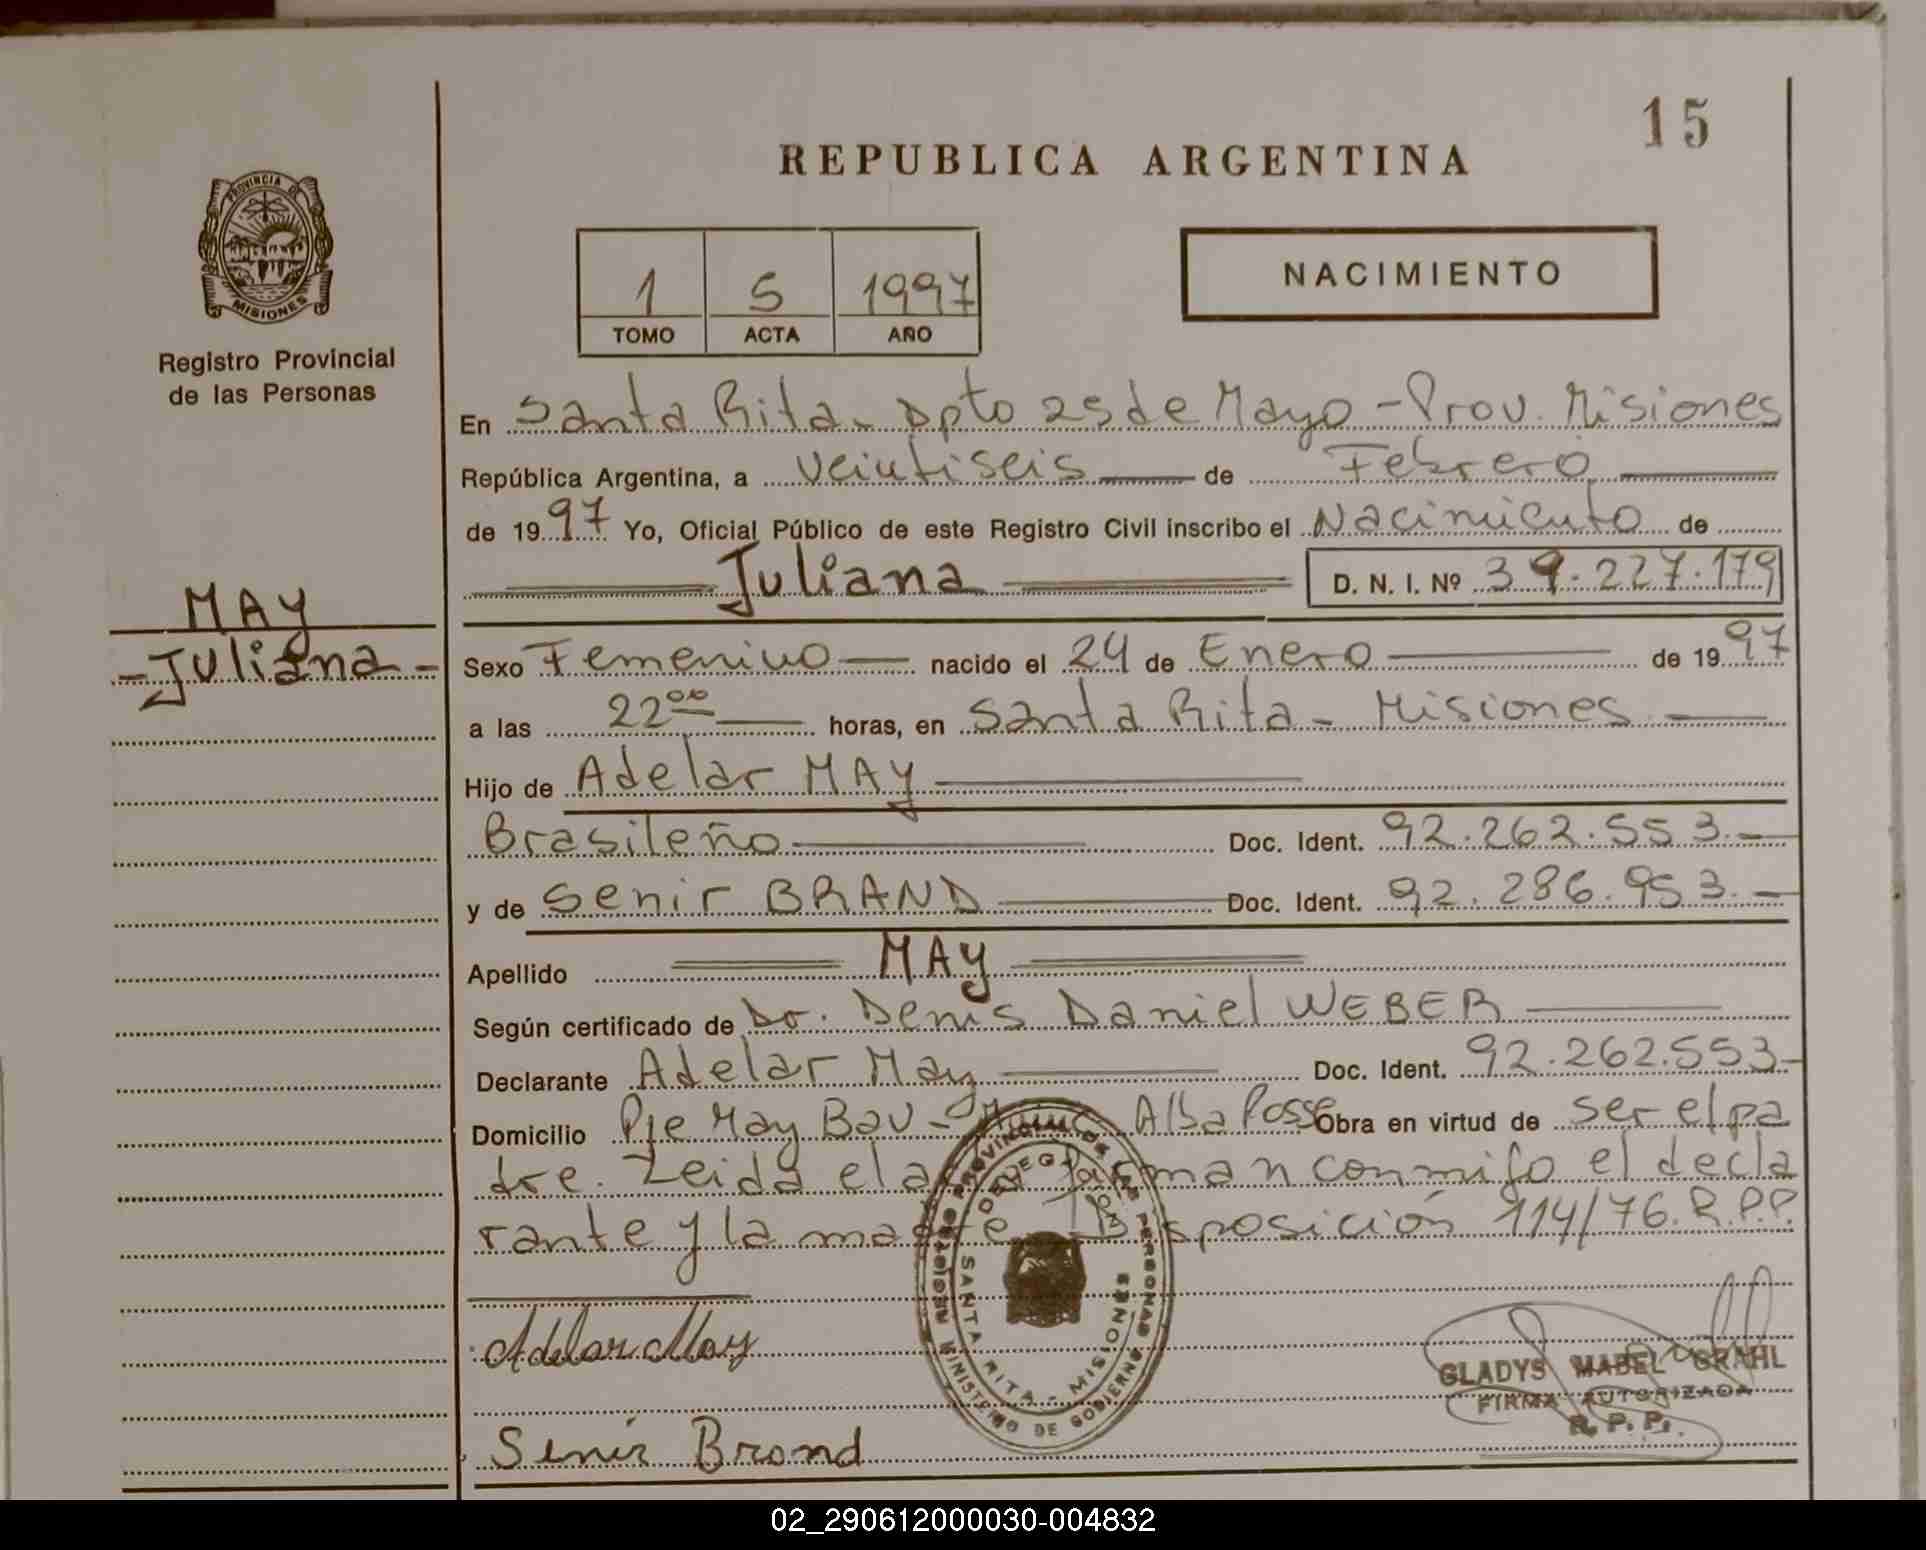 15
REPUBLICA ARGENTINA
PROVINCIA DE
MISIONES
Registro Provincial
de las Personas
1 5 1997
TOMO ACTA AÑO
NACIMIENTO
En Santa Rita - Dpto 25 de Mayo - Prov. Misiones
República Argentina, a veintiseis de Febrero
de 19 97 Yo, Oficial Público de este Registro Civil inscribo el Nacimiento de
Juliana D. N. I. Nº 39.227.179
MAY
- Juliana -
Sexo Femenino nacido el 24 de Enero de 19 97
a las 22 00 horas, en Santa Rita - Misiones
Hijo de Adelar MAY
Brasileño Doc. Ident. 92.262.553.-
y de Senir BRAND Doc. Ident. 92.286.953.-
Apellido MAY
Según certificado de Dr. Denis Daniel WEBER
Declarante Adelar May Doc. Ident. 92.262.553-
Domicilio Pje May Bau - Alba Posse Obra en virtud de ser el pa
dre. Leida el firman conmigo el decla
rante y la madre Disposición 114/76. R.P.P.
REGISTRO PROVINCIAL DE LAS PERSONAS
MINISTERIO DE GOBIERNO
SANTA RITA - MISIONES
Adelar May
GLADYS MABEL GRAHL
FIRMA AUTORIZADA
R. P. P.
Senir Brand
02_290612000030-004832